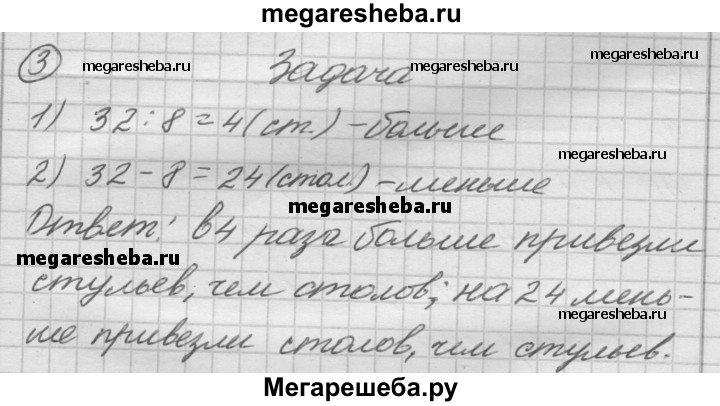 megaresheba.ru
③ megaresheba.ru Задача megaresheba.ru
1) 32:8=4(ст.) -больше
megaresheba.ru
2) 32-8=24(стол.) -меньше
megaresheba.ru
Ответ: в 4 раза больше привезли
megaresheba.ru
стульев, чем столов; на 24 мень-
megaresheba.ru
ше привезли столов, чем стульев.
Мегарешеба.ру